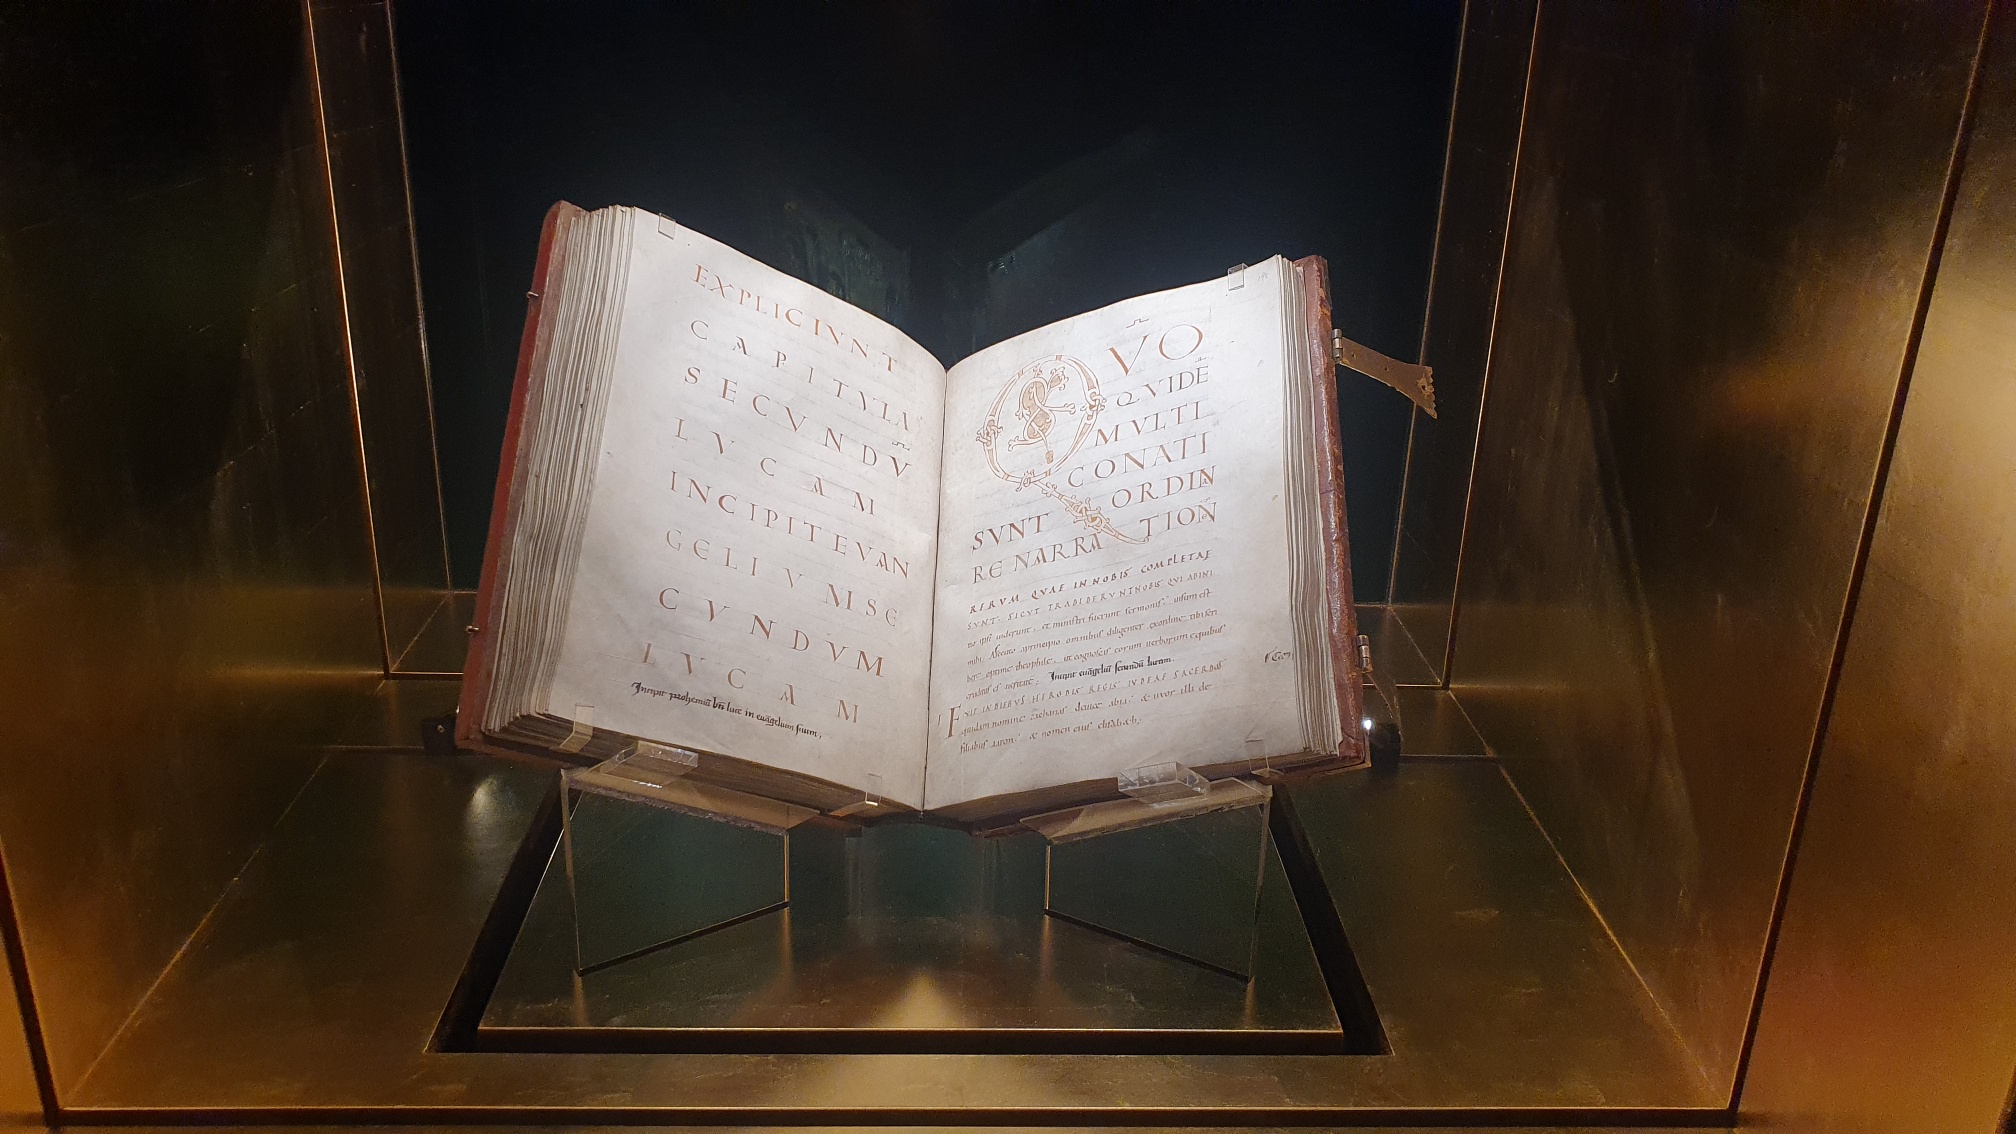 EXPLICIUNT
CAPITULA
SECUNDŪ
LUCAM
INCIPIT EVAN
GELIUM SE
CUNDUM
LUCAM
Incipit prohemiū bti luce in euāgelium suum
QUO
QVIDE
MVLTI
CONATI
SVNT ORDIN
RE NARRA TION
RERVM QVAE IN NOBIS COMPLETAE
SVNT SICVT TRADIDERVNT NOBIS QVI AB INI
tio ipsi uiderunt, et ministri fuerunt sermonis. uisum est
mihi. Assecuto a principio omnibus diligenter ex ordine tibi scri
bere optime theophile, ut cognoscas eorum uerborum e quibus
eruditus es ueritate. Incipit euāgeliū secundū lucam.
FVIT IN DIEBVS HERODIS REGIS IVDEAE SACERDOS
quidam nomine zacharias de uice abia. & uxor illi de
filiabus aaron. & nomen eius elisabeth.